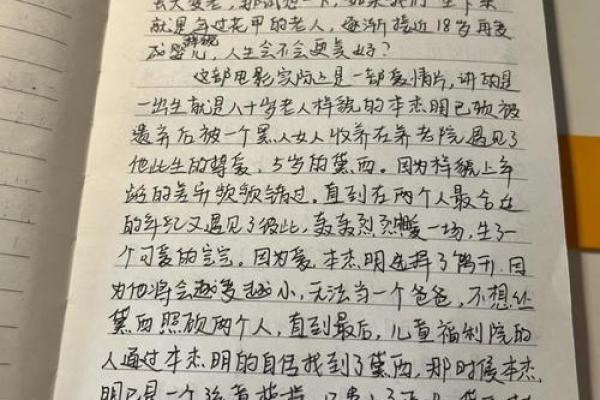 就是年过花甲的老人，逐渐接近18岁再变
成婴儿，人生会不会更美好？
这部电影实际上是一部爱情片，讲的是
一出生就是八十岁老人样貌的本杰明巴顿被
遗弃后被一个黑人女人收养在养老院遇见了
他此生的挚爱，5岁的黛西。因为样貌上年
龄的差异频频错过。直到在两个人最合适
的年纪又遇见了彼此，轰轰烈烈爱一场，生了一
个可爱的宝宝。因为爱，本杰明选择了离开，因
为他将会越变越小，无法当一个爸爸，不想让
黛西照顾两个人，直到最后，儿童福利院的
人通过本杰明的自传找到了黛西，那时候本杰
明已是一个